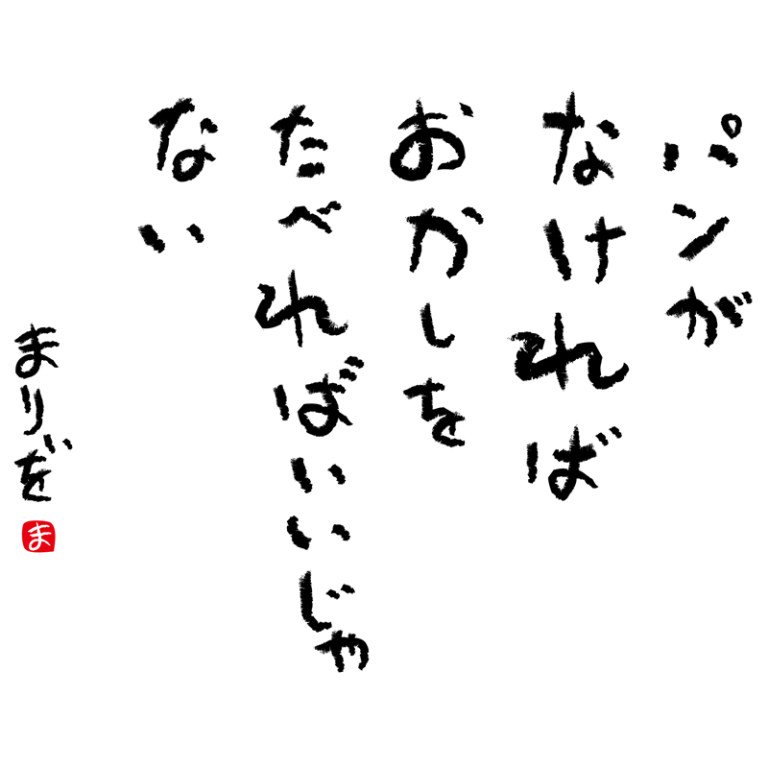 パンが
なければ
おかしを
たべればいいじゃ
ない
まりを゙
ま